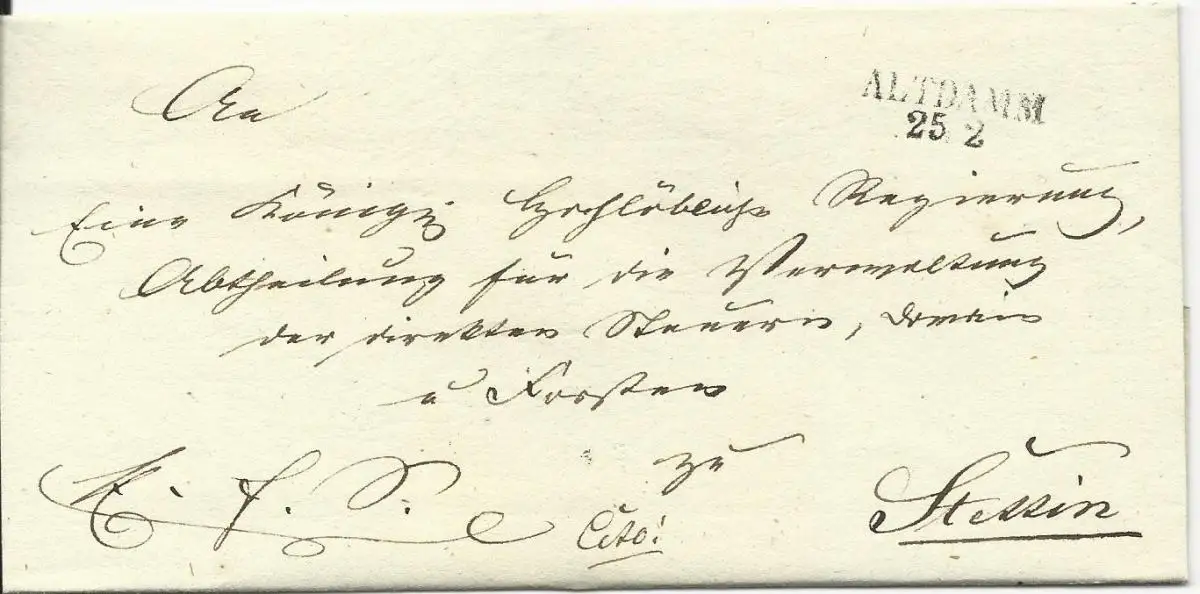 ALTDAMM
25 2
An
Eine Königl Hochlöbliche Regierung,
Abtheilung für die Verwaltung
der direkten Steuern, Domain
u Forsten
zu
H. f. S.
Cito!
Stettin